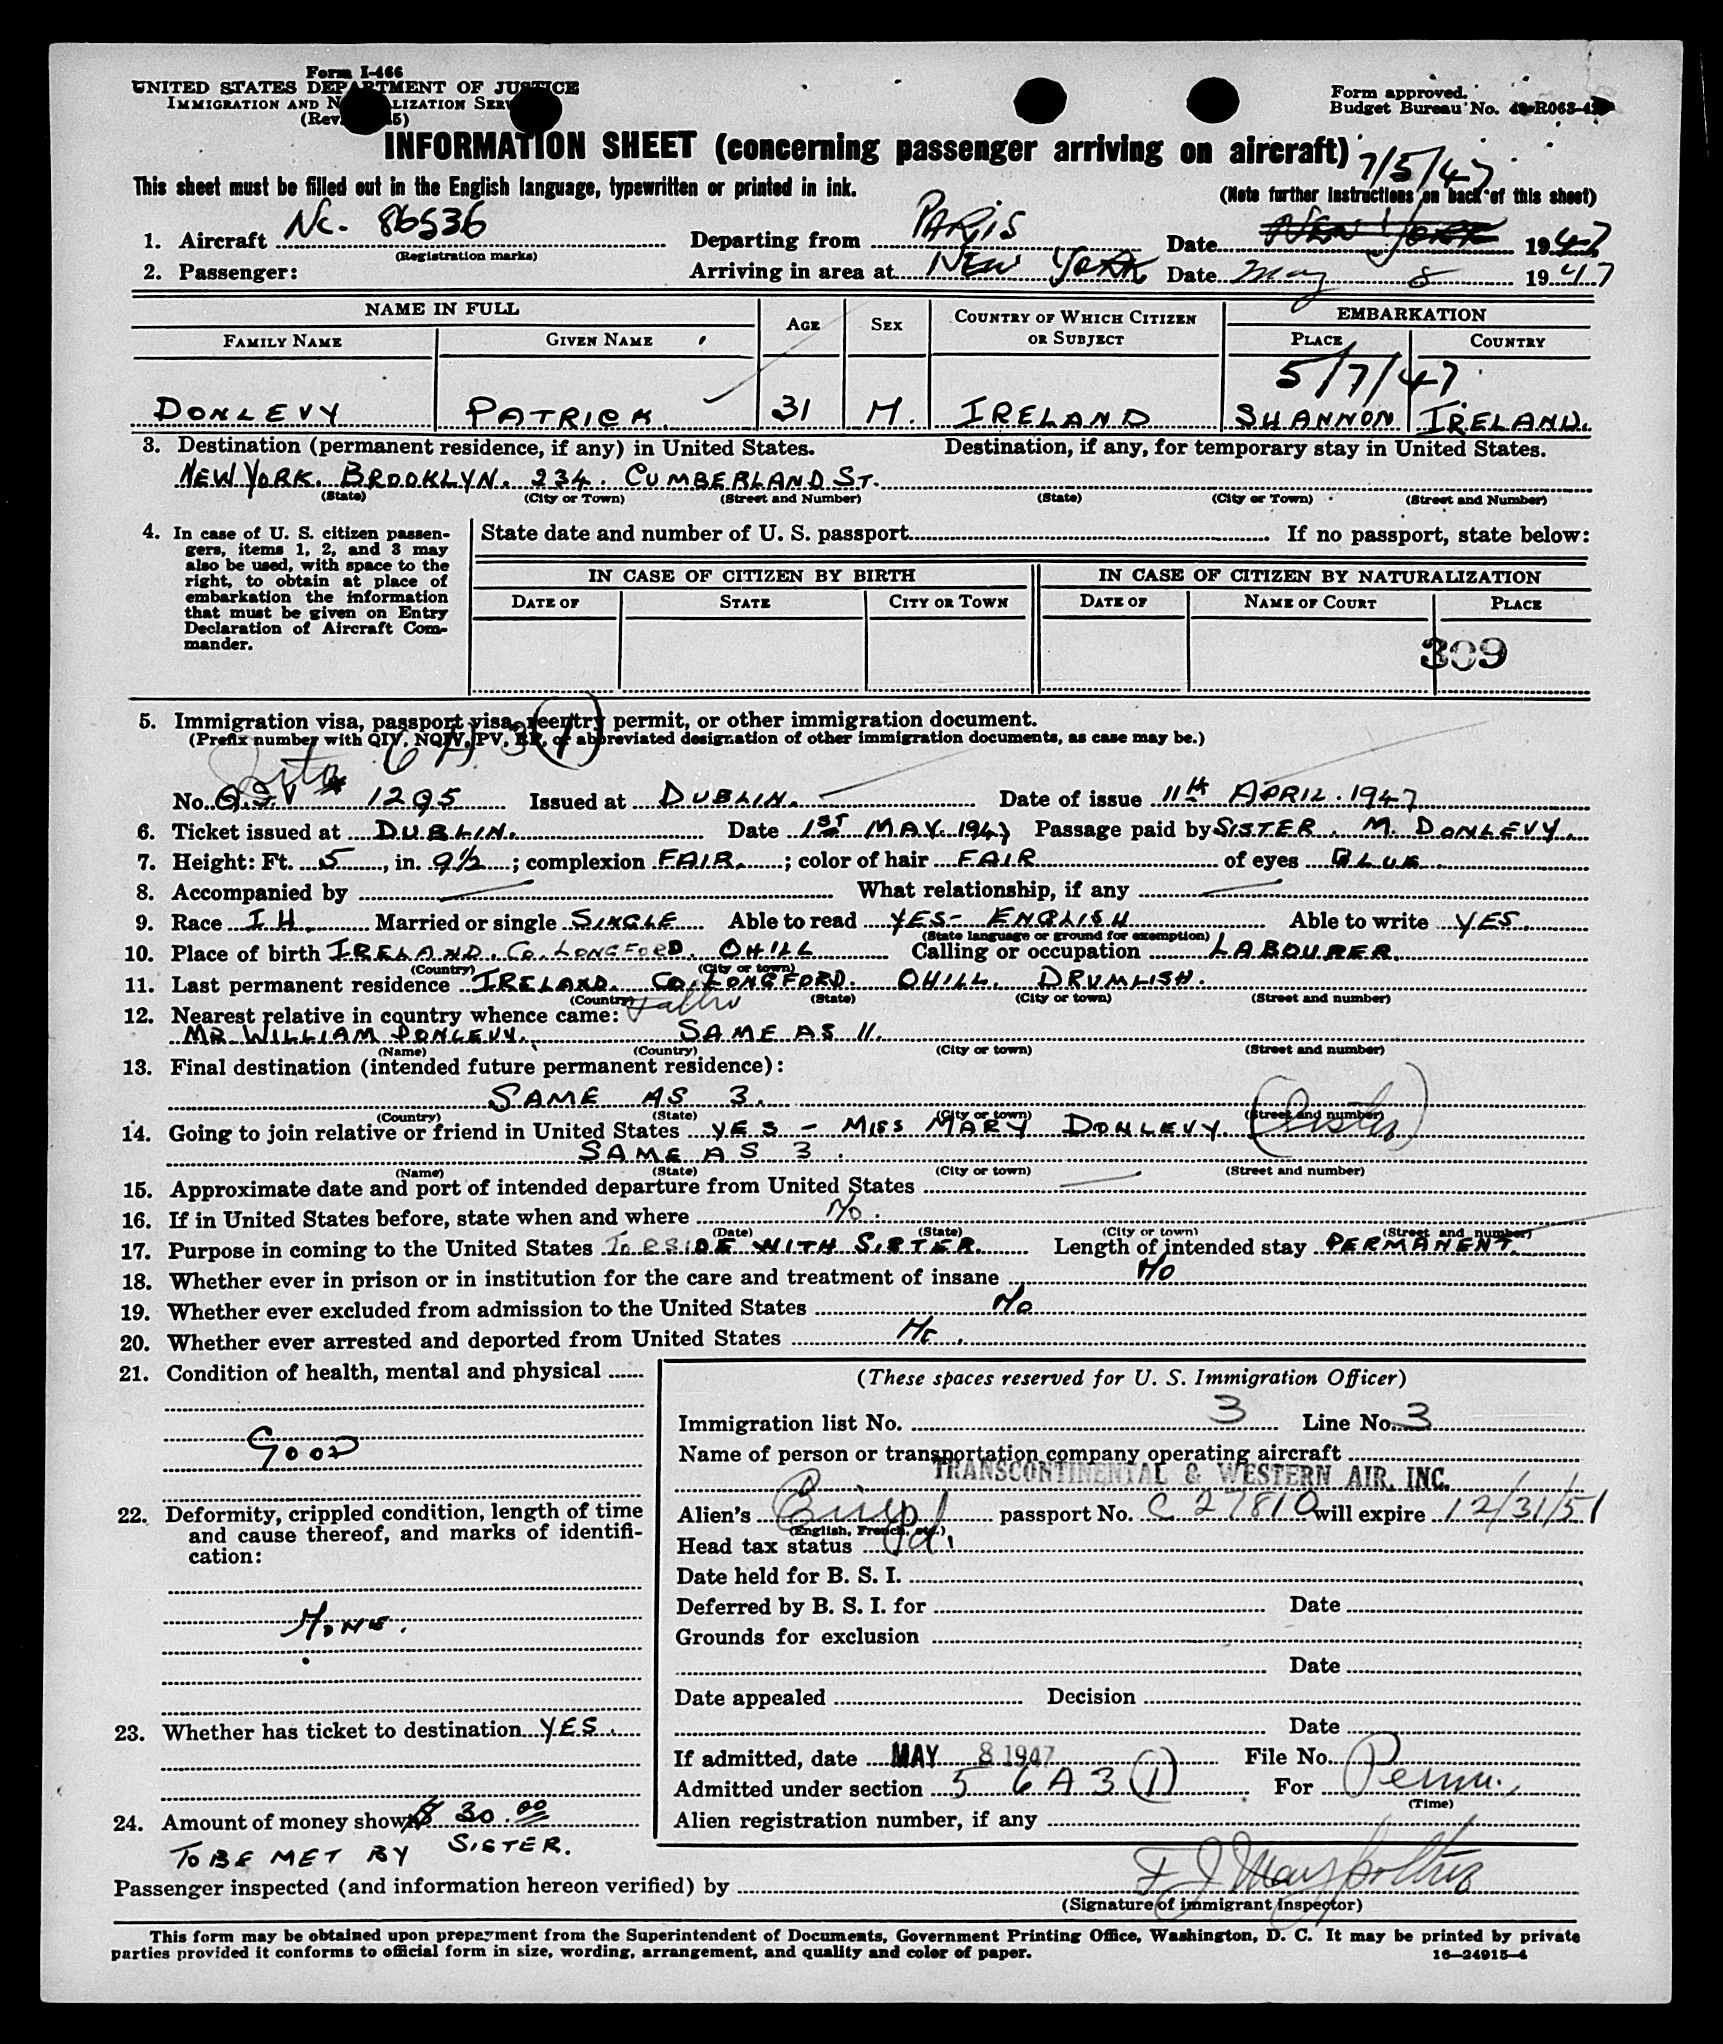 Form I-466
UNITED STATES DEPARTMENT OF JUSTICE
IMMIGRATION AND NATURALIZATION SERV
(Rev. 5)
Form approved.
Budget Bureau No. 43-R063-42
INFORMATION SHEET (concerning passenger arriving on aircraft)
7/5/47
This sheet must be filled out in the English language, typewritten or printed in ink.
(Note further instructions on back of this sheet)
1. Aircraft NC. 86536 Departing from PARIS Date New York 1947
(Registration marks)
2. Passenger: Arriving in area at NEW YORK Date May 8 1947
NAME IN FULL AGE SEX COUNTRY OF WHICH CITIZEN OR SUBJECT EMBARKATION
FAMILY NAME GIVEN NAME PLACE COUNTRY
5/7/47
DONLEVY PATRICK 31 M. IRELAND SHANNON IRELAND.
3. Destination (permanent residence, if any) in United States. Destination, if any, for temporary stay in United States.
NEW YORK. BROOKLYN. 234. CUMBERLAND ST.
(State) (City or Town) (Street and Number) (State) (City or Town) (Street and Number)
4. In case of U. S. citizen passengers, items 1, 2, and 3 may also be used, with space to the right, to obtain at place of embarkation the information that must be given on Entry Declaration of Aircraft Commander.
State date and number of U. S. passport If no passport, state below:
IN CASE OF CITIZEN BY BIRTH IN CASE OF CITIZEN BY NATURALIZATION
DATE OF STATE CITY OR TOWN DATE OF NAME OF COURT PLACE
309
5. Immigration visa, passport visa, reentry permit, or other immigration document.
(Prefix number with QIV, NQIV, PV, RP, or abbreviated designation of other immigration documents, as case may be.)
6 A 3 (1)
No. QIV # 1295 Issued at DUBLIN. Date of issue 11th APRIL. 1947
6. Ticket issued at DUBLIN. Date 1ST MAY. 1947 Passage paid by SISTER. M. DONLEVY.
7. Height: Ft. 5, in. 9½; complexion FAIR.; color of hair FAIR of eyes BLUE.
8. Accompanied by — What relationship, if any —
9. Race IH. Married or single SINGLE Able to read YES- ENGLISH Able to write YES.
(State language or ground for exemption)
10. Place of birth IRELAND. Co. LONGFORD. OHILL Calling or occupation LABOURER.
(Country) (City or town)
11. Last permanent residence IRELAND. Co. LONGFORD. OHILL. DRUMLISH.
(Country) (State) (City or town) (Street and number)
12. Nearest relative in country whence came: Father
MR. WILLIAM DONLEVY. SAME AS 11.
(Name) (Country) (City or town) (Street and number)
13. Final destination (intended future permanent residence):
SAME AS 3.
(Country) (State) (City or town) (Street and number)
14. Going to join relative or friend in United States YES - MISS MARY DONLEVY. (Sister)
SAME AS 3.
(Name) (State) (City or town) (Street and number)
15. Approximate date and port of intended departure from United States —
16. If in United States before, state when and where No.
(Date) (State) (City or town) (Street and number)
17. Purpose in coming to the United States To RESIDE WITH SISTER. Length of intended stay PERMANENT.
18. Whether ever in prison or in institution for the care and treatment of insane No
19. Whether ever excluded from admission to the United States No
20. Whether ever arrested and deported from United States No.
21. Condition of health, mental and physical
GOOD
22. Deformity, crippled condition, length of time and cause thereof, and marks of identification:
NONE.
23. Whether has ticket to destination YES.
24. Amount of money shown $ 30.00
TO BE MET BY SISTER.
(These spaces reserved for U. S. Immigration Officer)
Immigration list No. 3 Line No. 3
Name of person or transportation company operating aircraft
TRANSCONTINENTAL & WESTERN AIR, INC.
Alien's passport No. C 27810 will expire 12/31/51
(English, French, etc.)
Head tax status Pd.
Date held for B. S. I.
Deferred by B. S. I. for Date
Grounds for exclusion
Date
Date appealed Decision
Date
If admitted, date MAY 8 1947 File No.
Admitted under section 5 6 A 3 (1) For Perm.
(Time)
Alien registration number, if any
Passenger inspected (and information hereon verified) by
(Signature of immigrant inspector)
This form may be obtained upon prepayment from the Superintendent of Documents, Government Printing Office, Washington, D. C. It may be printed by private
parties provided it conforms to official form in size, wording, arrangement, and quality and color of paper. 16—24915-4